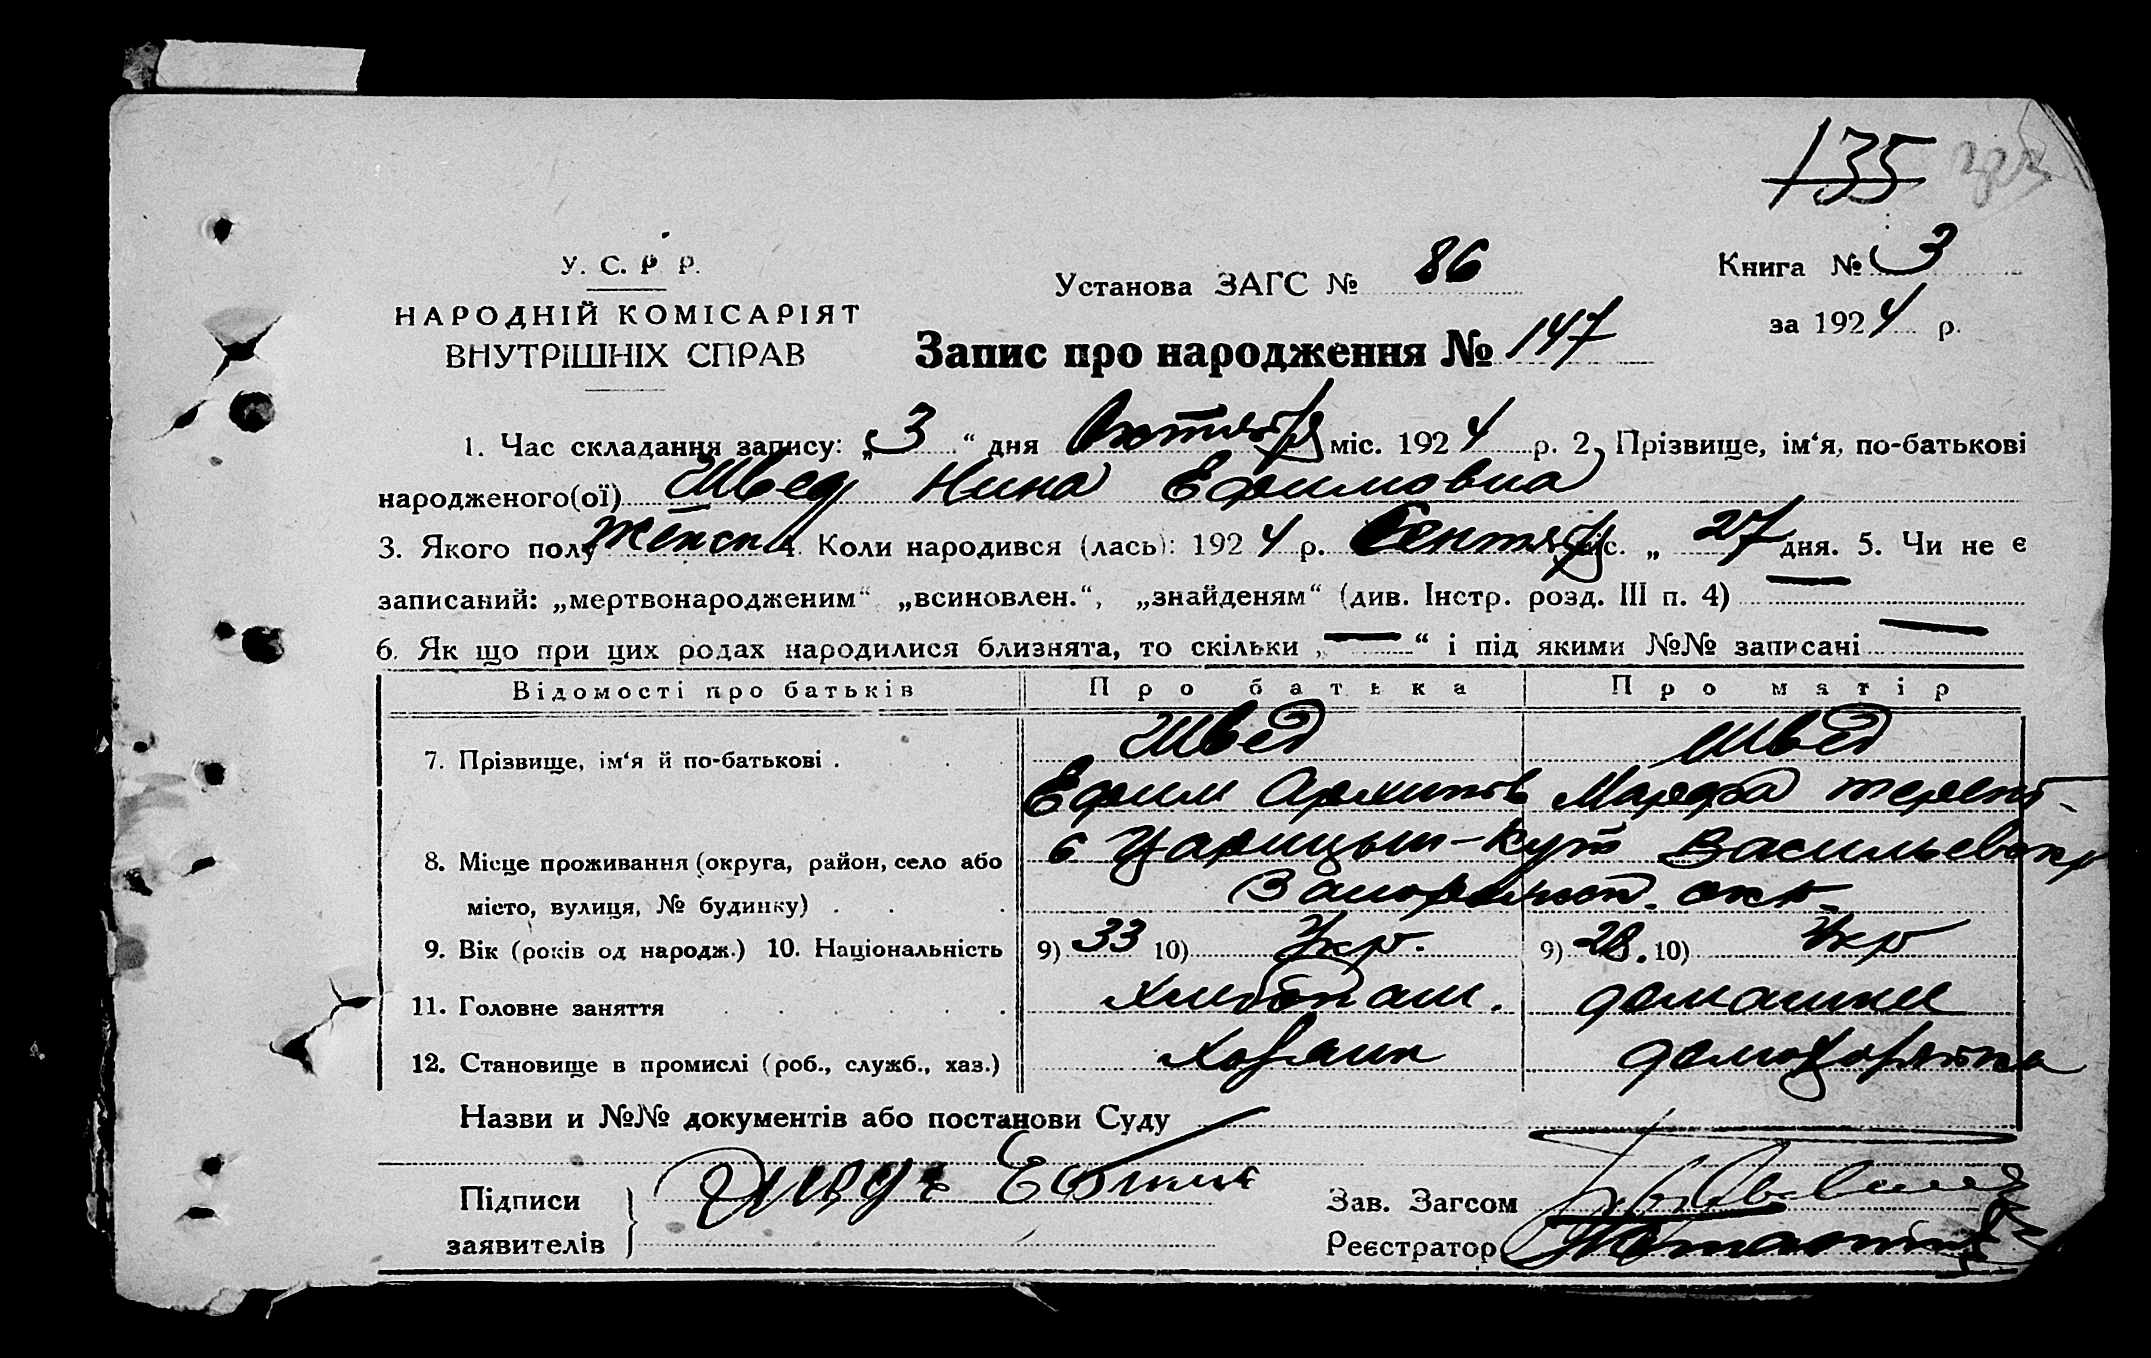 135
У. С. Р. Р.
НАРОДНІЙ КОМІСАРІЯТ
ВНУТРІШНІХ СПРАВ
Установа ЗАГС № 86
Книга № 3
за 1924 р.
Запис про народження № 147
1. Час складання запису: „3“ дня Октября міс. 1924 р. 2. Прізвище, ім‘я, по-батькові
народженого(ої) Швед Нина Ефимовна
3. Якого полу женск 4. Коли народився (лась): 1924 р. Сентяб міс. „ 27 дня. 5. Чи не є
записаний: „мертвонародженим“ „всиновлен.“, „знайденям“ (див. Інстр. розд. III п. 4) —
6. Як що при цих родах народилися близнята, то скільки „—“ і під якими №№ записані —
Відомості про батьків Про батька Про матір
7. Прізвище, ім‘я й по-батькові . Швед Швед
Ефим Архипов Марфа терент
8. Місце проживання (округа, район, село або с Царицын-Кут Васильевск
місто, вулиця, № будинку) . . . Запорожск. окр.
9. Вік (років од народж.) 10. Національність 9) 33 10) Укр. 9) 28. 10) Укр
11. Головне заняття . . . . . . Хлебопаш. домашнее
12. Становище в промислі (роб., служб., хаз.) хозяин домохозяйка
Назви и №№ документів або постанови Суду
Підписи Швед Ефим
заявителів
Зав. Загсом
Реєстратор